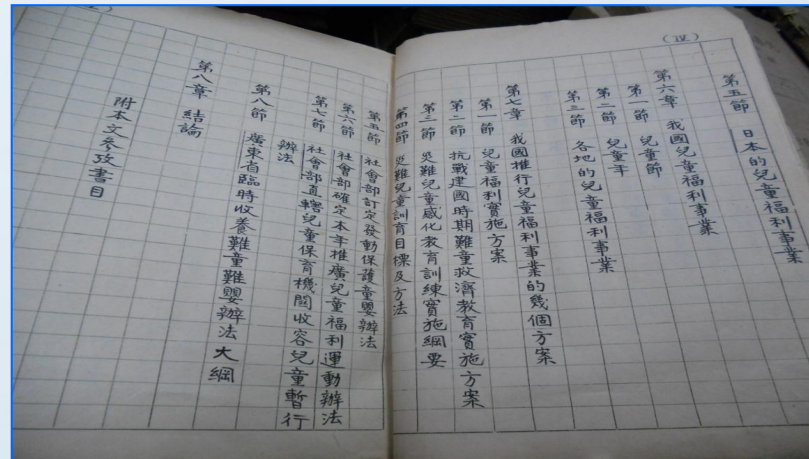 (IV)
第五節 日本的兒童福利事業
第六章 我國兒童福利事業
第一節 兒童節
第二節 兒童年
第三節 各地的兒童福利事業
第七章 我國推行兒童福利事業的幾個方案
第一節 兒童福利實施方案
第二節 抗戰建國時期難童救濟教育實施方案
第三節 災難兒童感化教育訓練實施綱要
第四節 災難兒童訓育目標及方法
第五節 社會部訂定發動保護童嬰辦法
第六節 社會部確定本年推廣兒童福利運動辦法
第七節 社會部直轄兒童保育機關收容兒童暫行
辦法
第八節 廣東省臨時收養難童難嬰辦法大綱
第八章 結論
附本文參攷書目